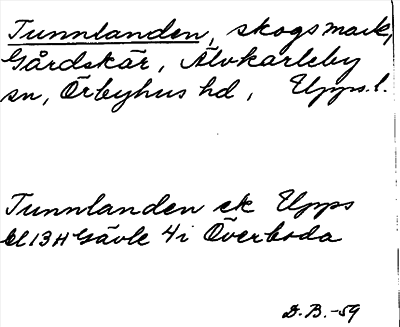 Tunnlanden, skogsmark,
Gårdskär, Älvkarleby
sn, Örbyhus hd, Upps. l.
Tunnlanden ek Upps
bl 13 H Gävle 4i Överboda
D.B.-59